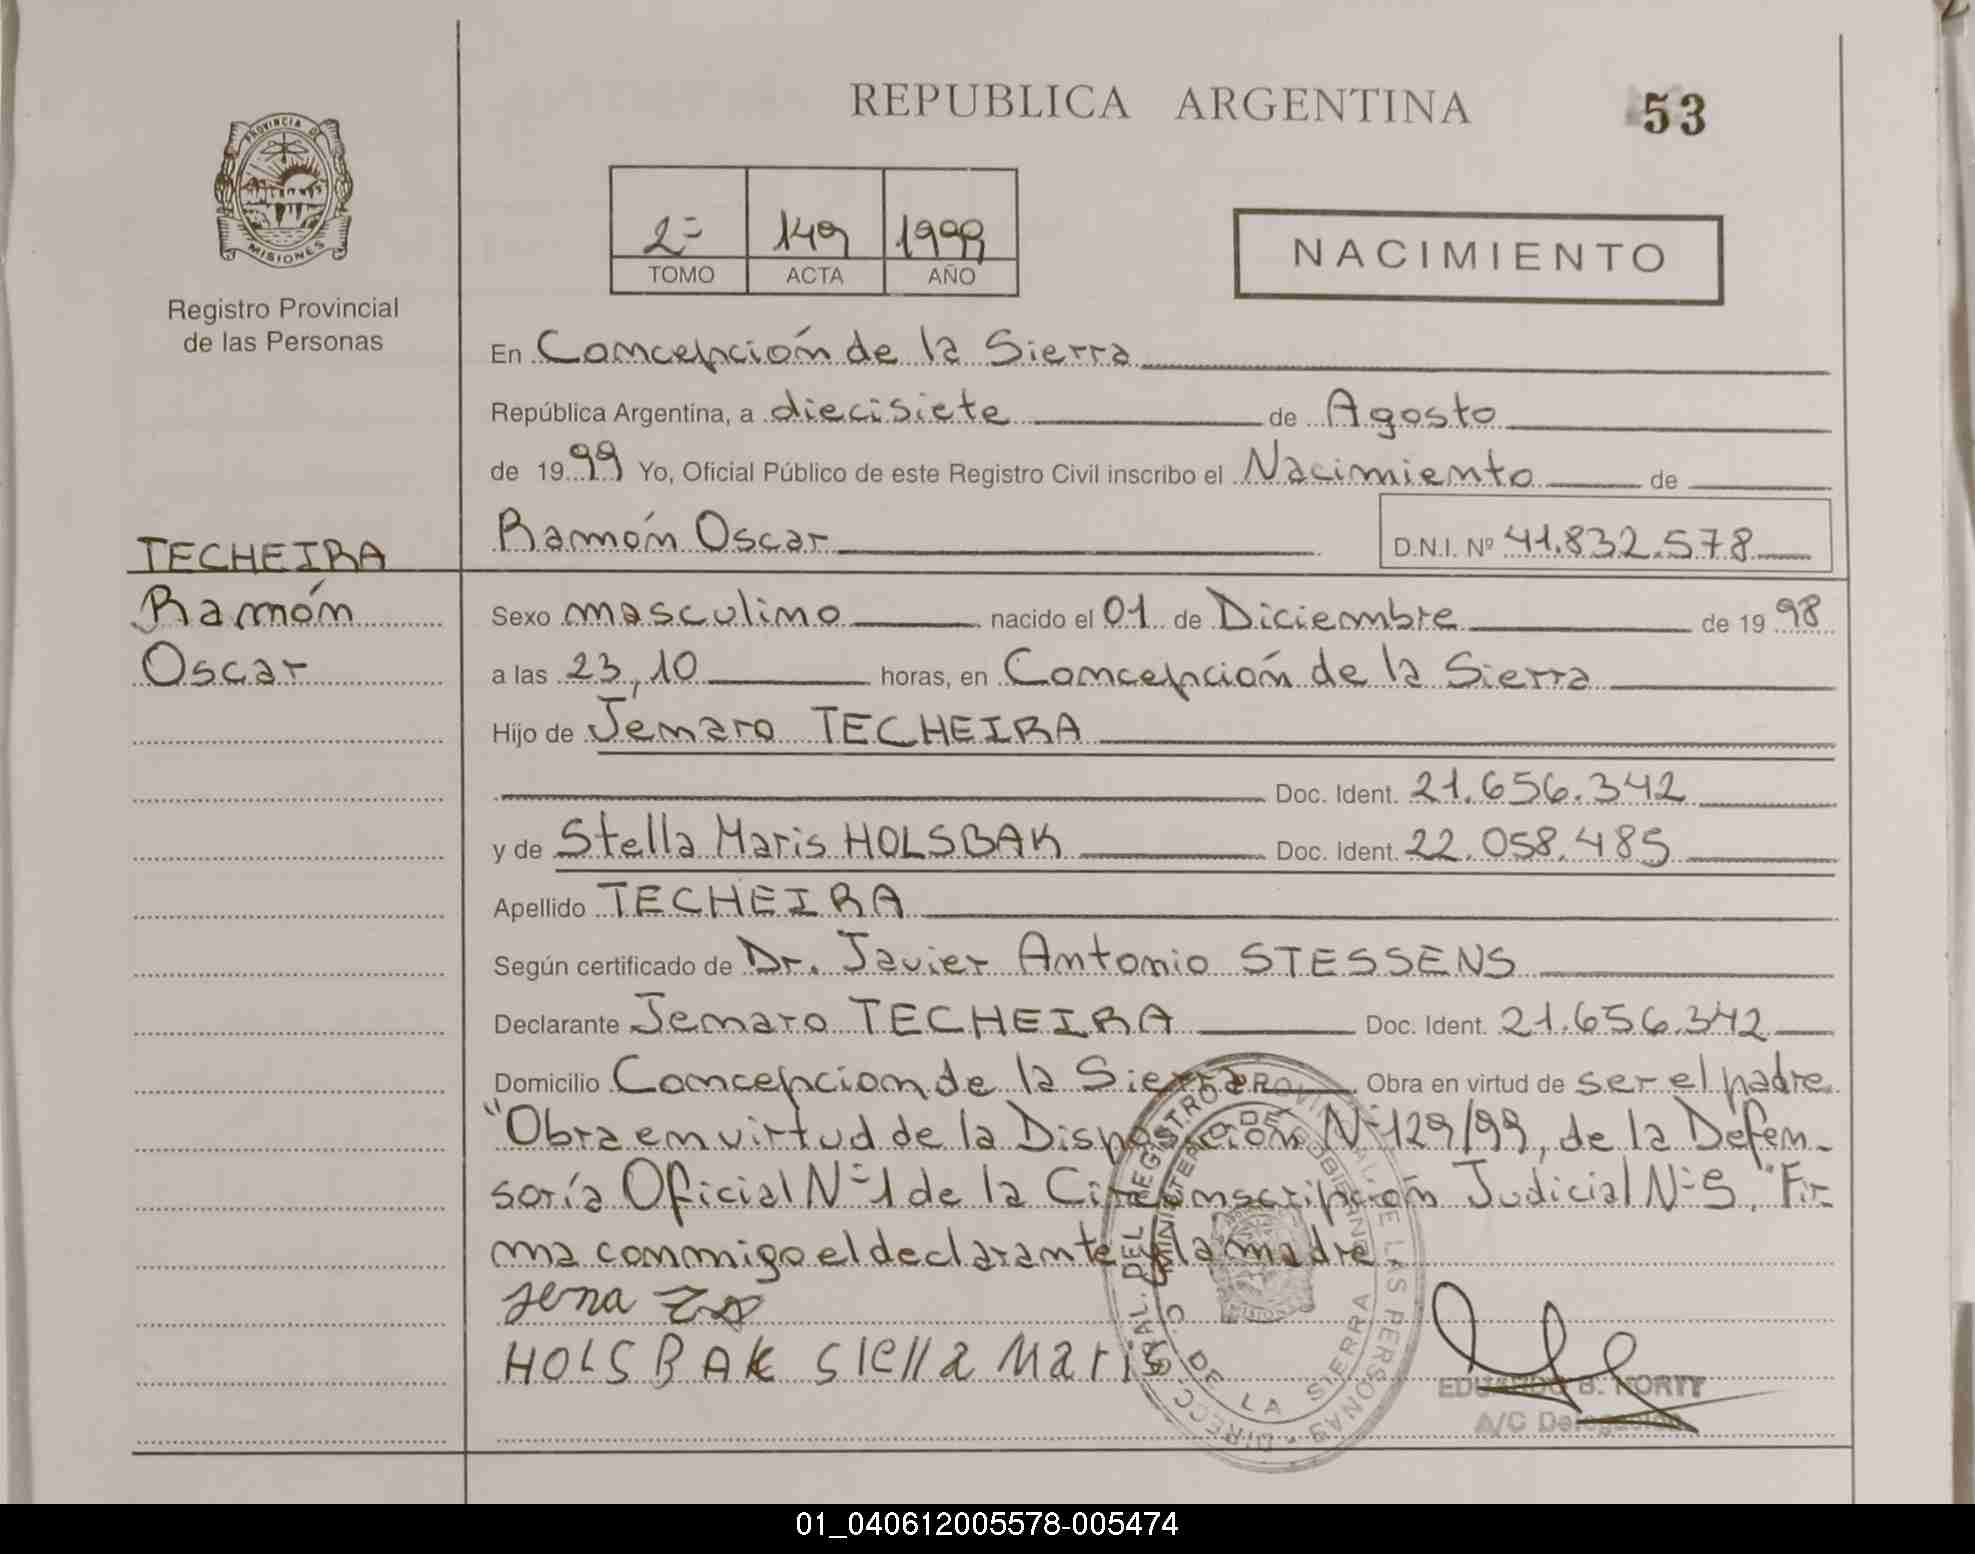 REPUBLICA ARGENTINA
53
PROVINCIA DE
MISIONES
Registro Provincial
de las Personas
2º 149 1999
TOMO ACTA AÑO
NACIMIENTO
En Concepción de la Sierra
República Argentina, a diecisiete de Agosto
de 1999 Yo, Oficial Público de este Registro Civil inscribo el Nacimiento de
Ramón Oscar D.N.I. Nº 41.832.578
TECHEIRA
Ramón
Oscar
Sexo masculino nacido el 01 de Diciembre de 1998
a las 23,10 horas, en Concepción de la Sierra
Hijo de Jenaro TECHEIRA
Doc. Ident. 21.656.342
y de Stella Maris HOLSBAK Doc. Ident. 22.058.485
Apellido TECHEIRA
Según certificado de Dr. Javier Antonio STESSENS
Declarante Jenaro TECHEIRA Doc. Ident. 21.656.342
Domicilio Concepcion de la Sierra Obra en virtud de ser el padre
"Obra en virtud de la Disposición Nº 129/99, de la Defen-
soría Oficial Nº 1 de la Circunscripción Judicial Nº 5." Fir-
ma conmigo el declarante y la madre
HOLSBAK Stella Maris
DIRECC. GRAL. DEL REGISTRO PROVINCIAL DE LAS PERSONAS
MINISTERIO DE GOBIERNO
C. DE LA SIERRA
EDUARDO B. 
A/C Delegación
01_040612005578-005474